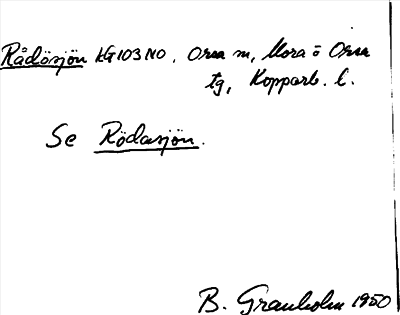 Rådösjön kG103NO. Orsa sn, Mora ö Orsa
tg, Kopparb. l.
Se Rödasjön.
B. Granholm 1950